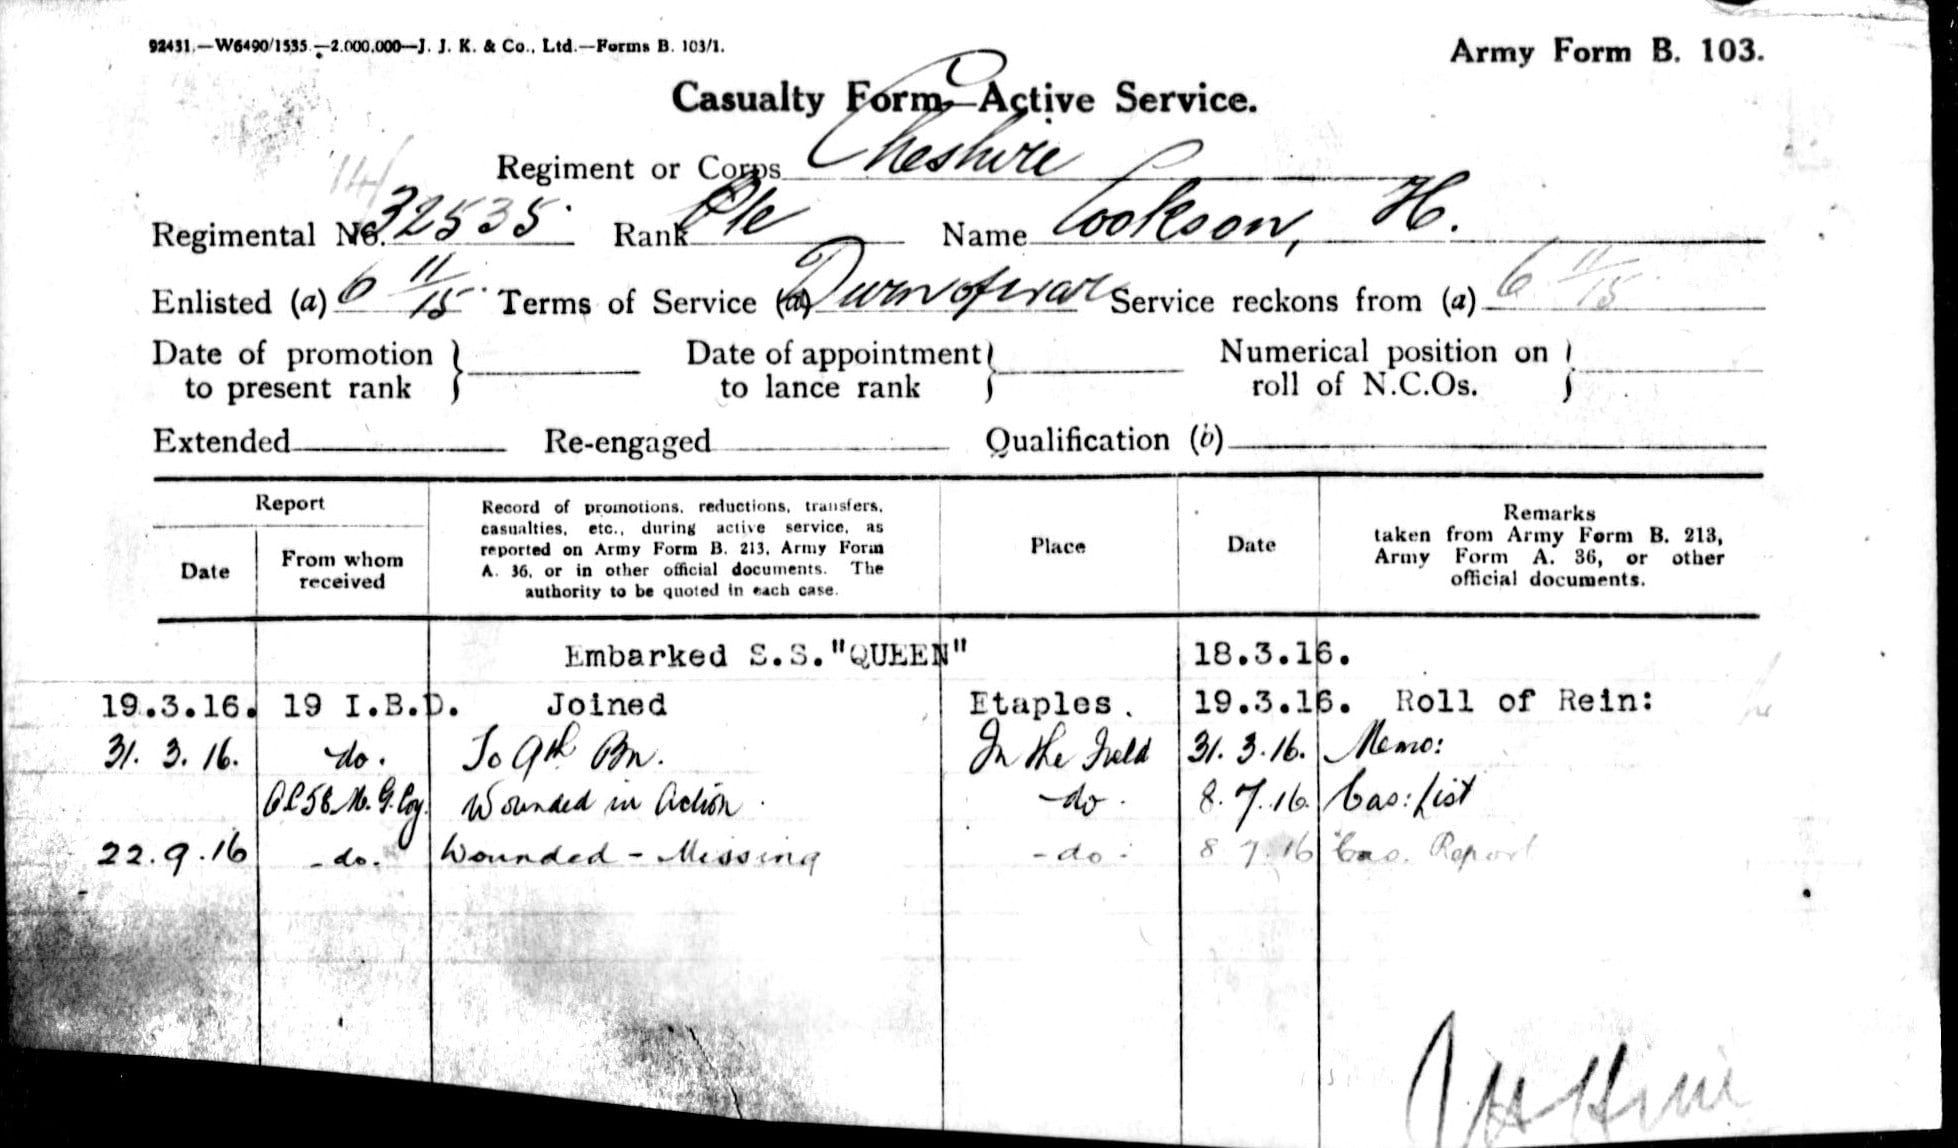 92431.—W6490/1535.—2,000,000—J. J. K. & Co., Ltd.—Forms B. 103/1.
Army Form B. 103.
Casualty Form—Active Service.
Regiment or Corps Cheshire
14/
Regimental No. 32535 Rank Pte Name Cookson, H.
Enlisted (a) 6 11/15 Terms of Service (a) Durn of war Service reckons from (a) 6 11/15
Date of promotion to present rank } Date of appointment to lance rank } Numerical position on roll of N.C.Os. }
Extended Re-engaged Qualification (b)
Report
Date
From whom received
Record of promotions, reductions, transfers,
casualties, etc., during active service, as
reported on Army Form B. 213, Army Form
A. 36, or in other official documents. The
authority to be quoted in each case.
Place
Date
Remarks
taken from Army Form B. 213,
Army Form A. 36, or other
official documents.
Embarked S.S."QUEEN" 18.3.16.
19.3.16. 19 I.B.D. Joined Etaples. 19.3.16. Roll of Rein:
31. 3. 16. do. To 9th Bn. In the Field 31. 3. 16. Memo:
58 M. G. Coy. Wounded in Action. do. 8. 7. 16. Cas: List
22. 9. 16 - do. Wounded - Missing - do - 8 7. 16 Cas. Report